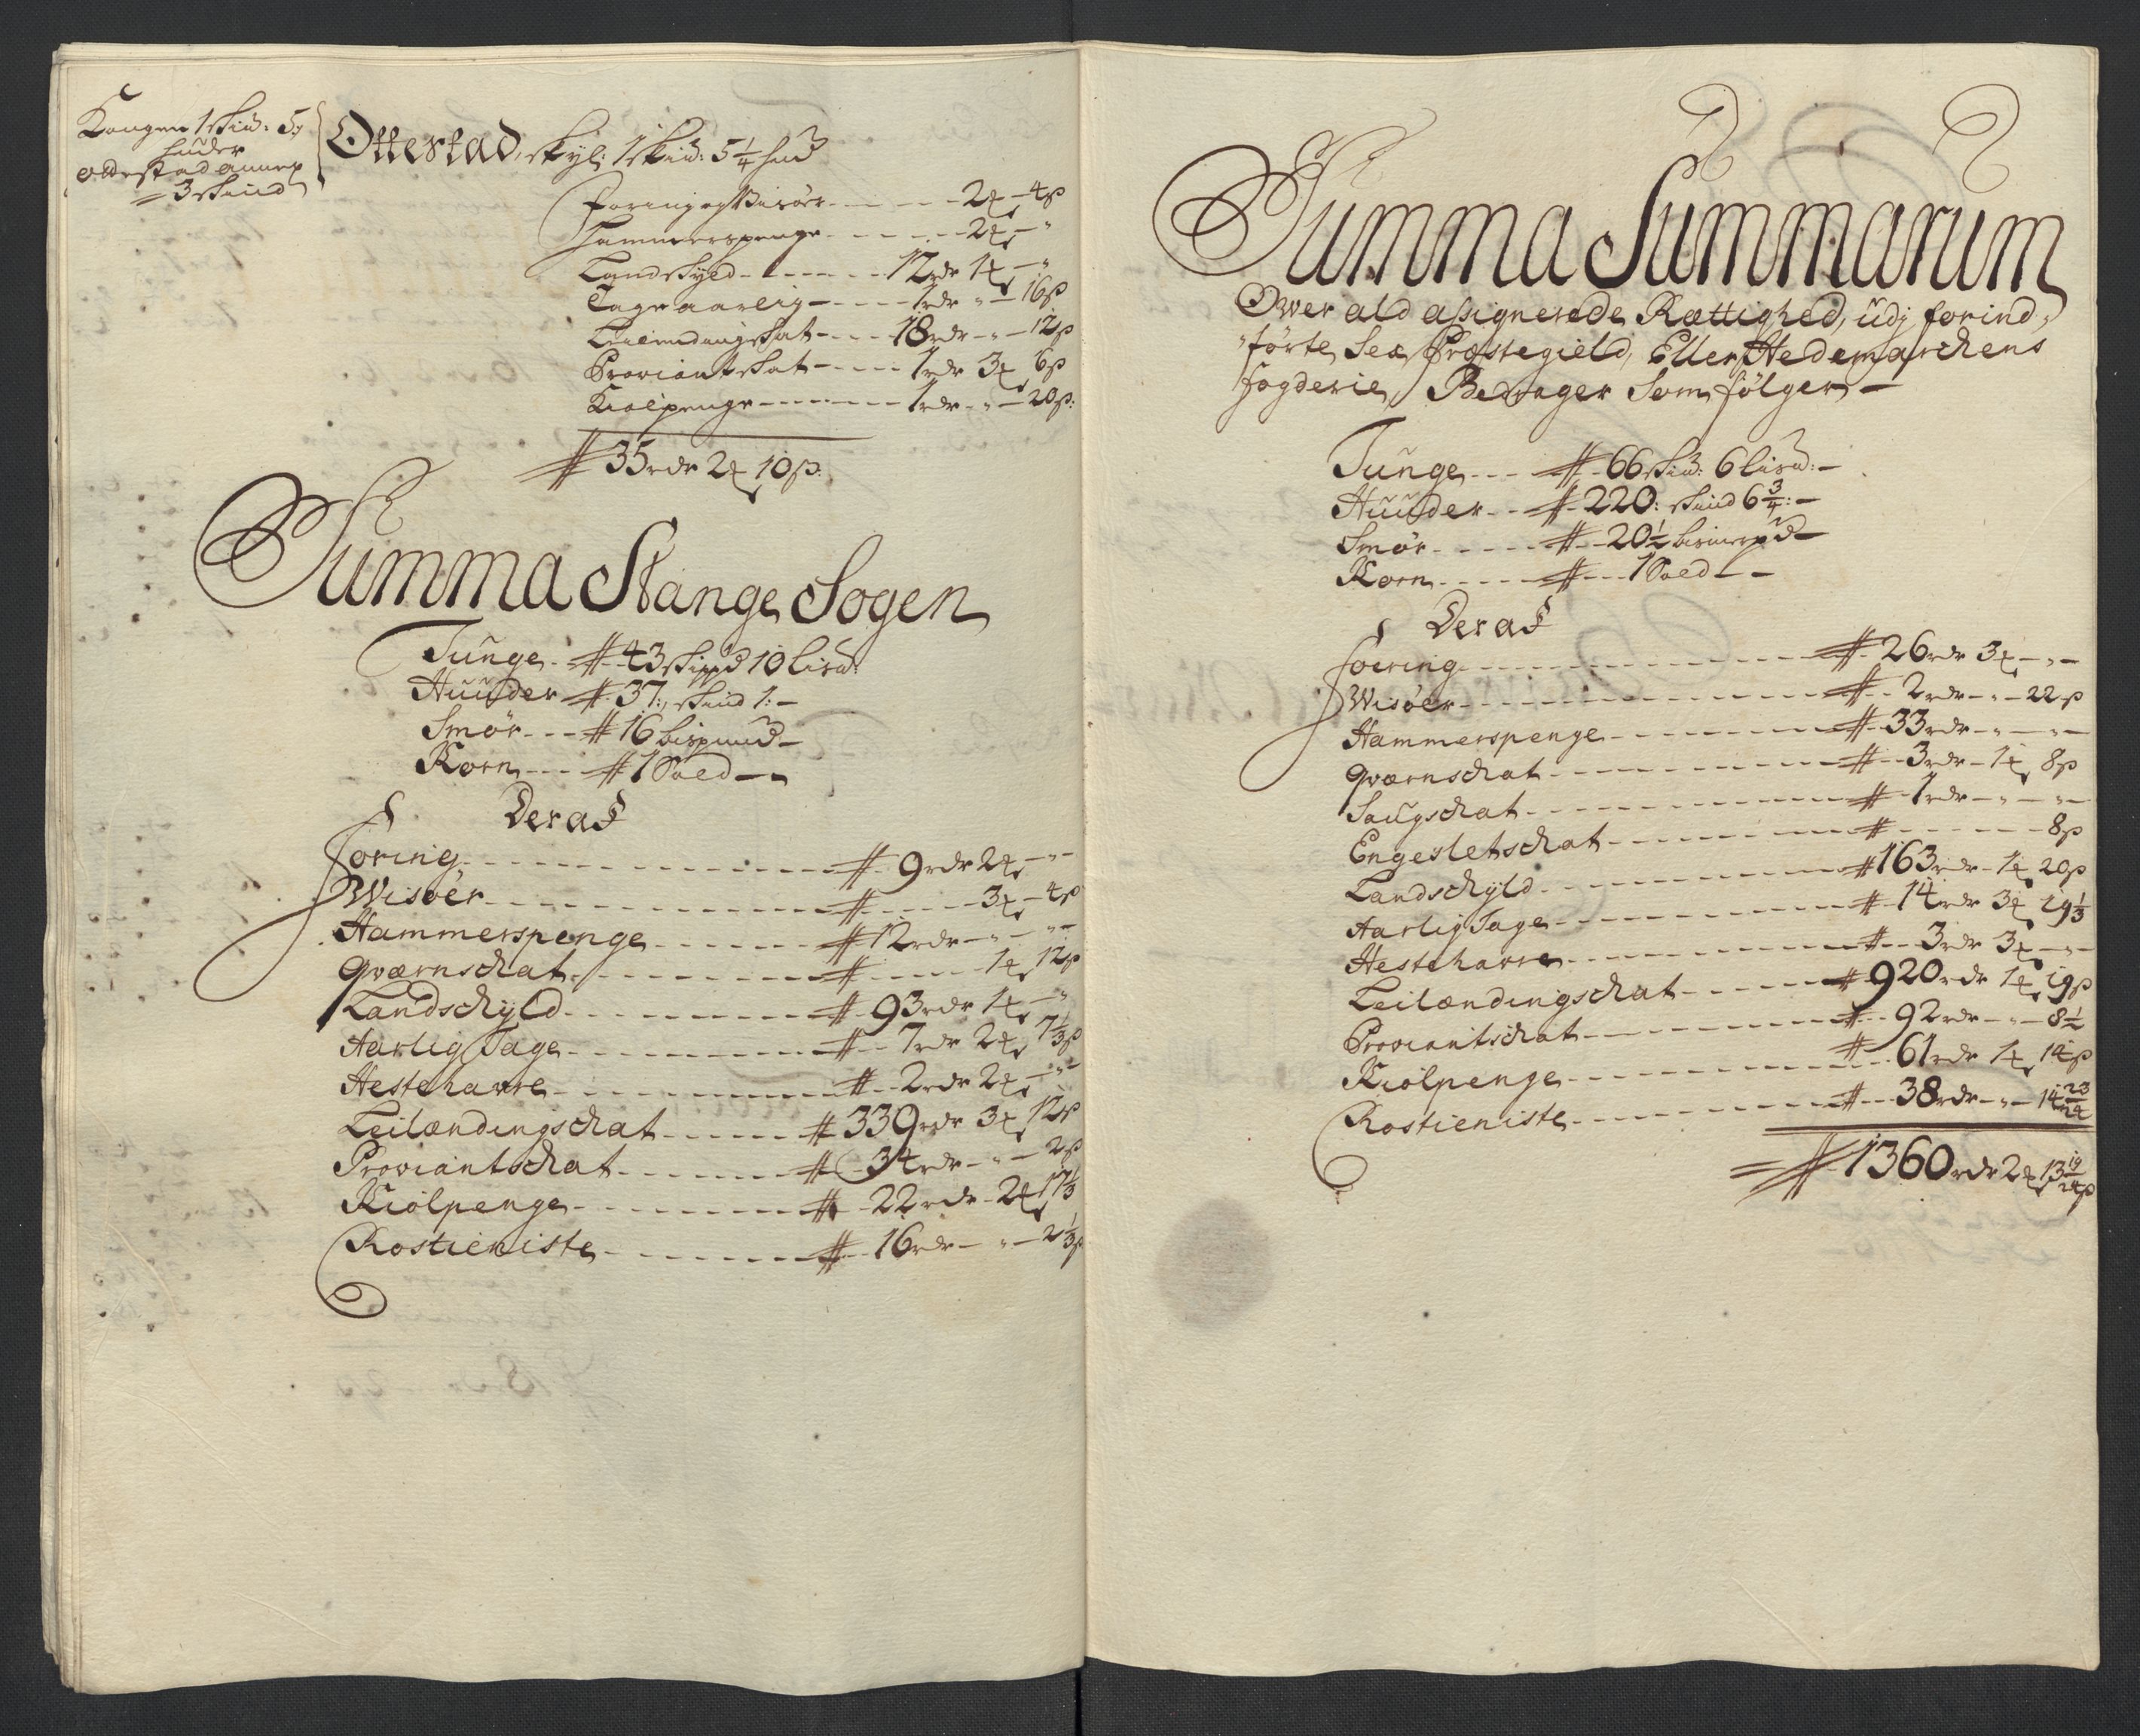 Kongen 1 skind: 5
huder
Ottestad annex
= 3 skind
Ottestad, skyl: 1 skind: 5 1/4 hud
Foring og Wisøer - - - - - 2 ort - 4 s
Hammerspenge - - - - - 2 ort - "
Landskyld - - - - - - 12 rdr 1 ort - "
Tage aarlig - - - - 1 rdr - " - 16 s
Leilendingskat - - - 18 rdr - " - 12 s
Proviantskat - - - - 1 rdr 3 ort 6 s
Kiolpenge - - - - - - 1 rdr - " - 20 s:
# 35 rdr 2 ort 10 s:
Summa Stange Sogen
Tunge - # - 43 skippd 10 lisd:
Huuder # 37:, skind 1: -
Smør - - - # 16 bispund -
Korn - - - # 1 Soed - -
Deraf
Foring - - - - - - - - - - # - 9 rdr 2 ort - " -
Wisøer - - - - - - - - - - # - - - - - 3 ort - 4 s
Hammerspenge - - - - - - # 12 rdr - " - " -
Qværnschat - - - - - - - - # - - - - - 1 ort 12 s
Landschyld - - - - - - - - # - 93 rdr 1 ort - "
Aarlig Tage - - - - - - - - # - - 7 rdr 2 ort 7 1/3 s
Hestehavre - - - - - - - - # - - 2 rdr 2 ort - " -
Leilændingschat - - - - - # 339 rdr 3 ort 12 s
Proviantschat - - - - - - # - 34 rdr - " - 2 s
Kiølpenge - - - - - - - - # - 22 rdr - 2 ort 17 1/3
Rostieniste - - - - - - - # - 16 rdr - " - 2 1/3 s
Summa Summarum
Ower ald assignerede Rættighed, udj forind,
"førte Sex Præstegield, Eller Hedemarchens
Fogderie, Bedrager Som følger -
Tunge - - - # - 66 skind: 6 lisd: -
Huuder - - # - 220: skind 6 3/4: -
Smør - - - - - # - - 20 1/2 bismerpd -
Korn - - - - - # - - - 1 Soed - -
Deraf
Foering - - - - - - - - - - # - 26 rdr 3 ort - " -
Wisøer - - - - - - - - - - # - - 2 rdr - " - 22 s
Hammerspenge - - - - - - - # - 33 rdr - " - " -
Qværnschat - - - - - - - - # - - 3 rdr - 1 ort 8 s
Saugschat - - - - - - - - # - 1 rdr - " - " -
Engesletschat - - - - - - - # - - - - - - 8 s
Landschyld - - - - - - - - # 163 rdr - 1 ort 20 s
Aarlig Tage - - - - - - - - # - 14 rdr 3 ort 19 1/3
Hestehavre - - - - - - - - # - - 3 rdr 3 ort - " -
Leilændingschat - - - - - # 920 rdr 1 ort 19 s
Proviantschat - - - - - - # - - 92 rdr - " - 8 1/2
Kiølpenge - - - - - - - - # - - 61 rdr 1 ort 14 s
Rostieniste - - - - - - - # - - 38 rdr - " - 14 23/24
= # 1360 rdr 2 ort 13 19/24 s